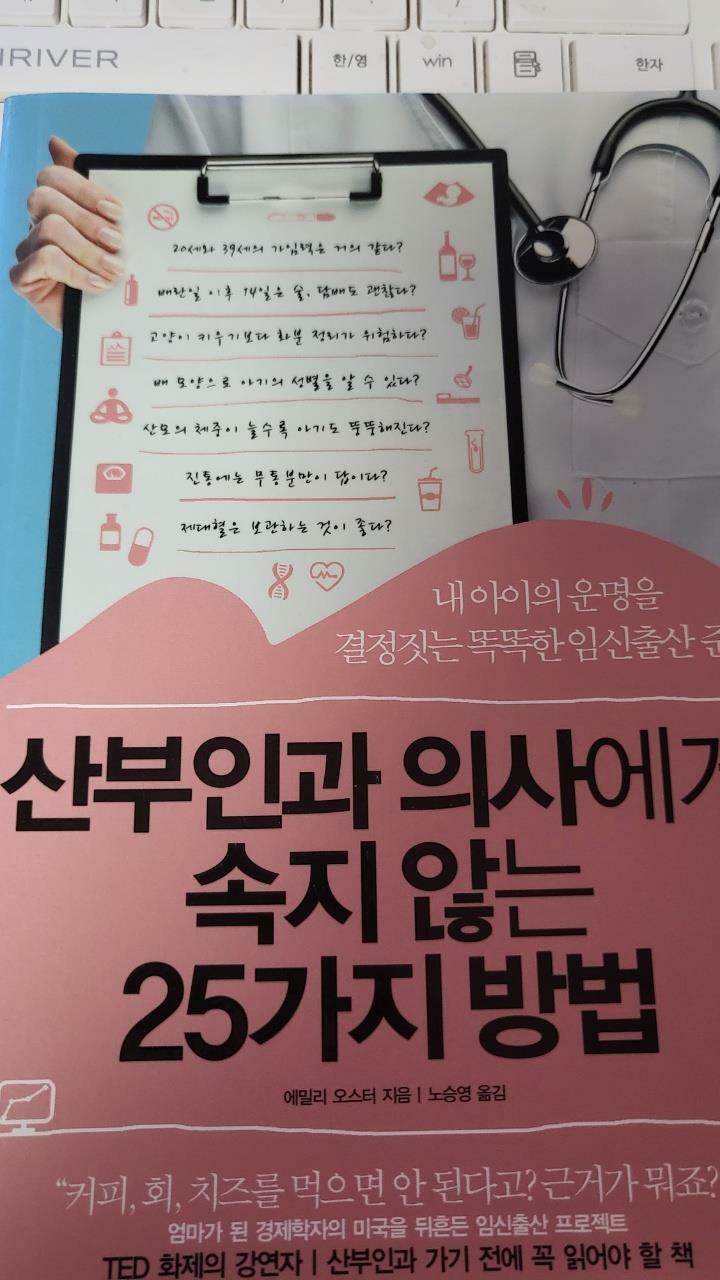 IRIVER
한/영
win
한자
20세와 39세의 가임력은 거의 같다?
배란일 이후 14일은 술, 담배도 괜찮다?
고양이 키우기보다 화분 정리가 위험하다?
배 모양으로 아기의 성별을 알 수 있다?
산모의 체중이 늘수록 아기도 뚱뚱해진다?
진통에는 무통분만이 답이다?
제대혈은 보관하는 것이 좋다?
내 아이의 운명을
결정짓는 똑똑한 임신출산 준
산부인과 의사에게
속지 않는
25가지 방법
에밀리 오스터 지음 | 노승영 옮김
“커피, 회, 치즈를 먹으면 안 된다고? 근거가 뭐죠?
엄마가 된 경제학자의 미국을 뒤흔든 임신출산 프로젝트
TED 화제의 강연자 | 산부인과 가기 전에 꼭 읽어야 할 책